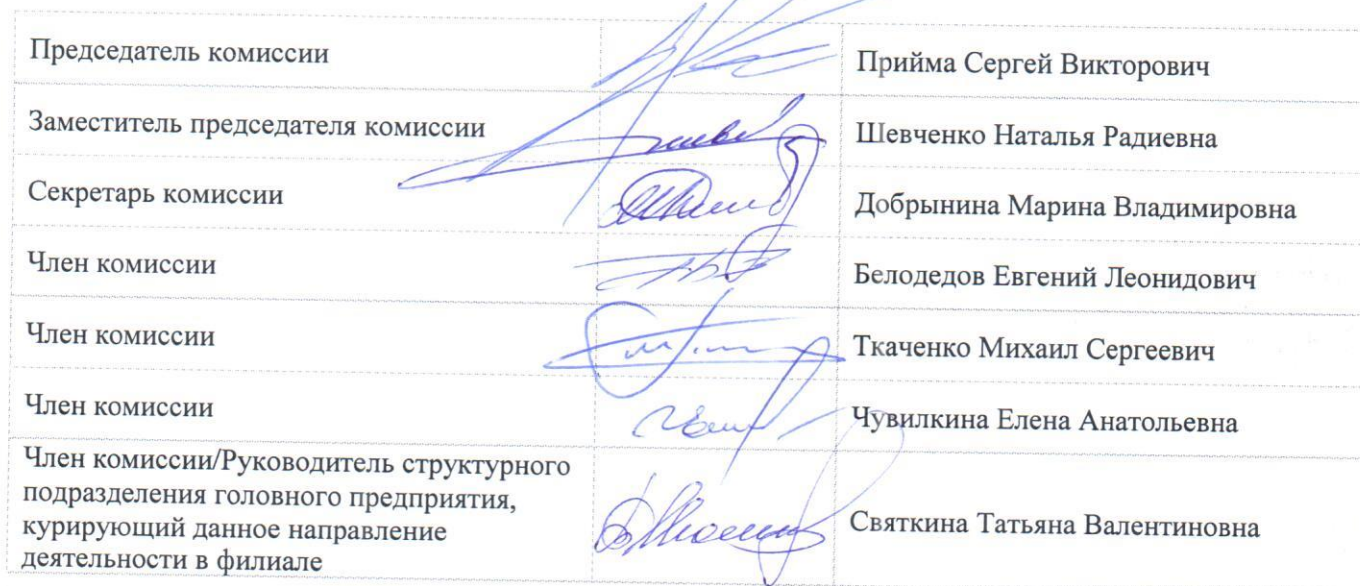 Председатель комиссии Прийма Сергей Викторович
Заместитель председателя комиссии Шевченко Наталья Радиевна
Секретарь комиссии Добрынина Марина Владимировна
Член комиссии Белодедов Евгений Леонидович
Член комиссии Ткаченко Михаил Сергеевич
Член комиссии Чувилкина Елена Анатольевна
Член комиссии/Руководитель структурного
подразделения головного предприятия,
курирующий данное направление
деятельности в филиале
Святкина Татьяна Валентиновна